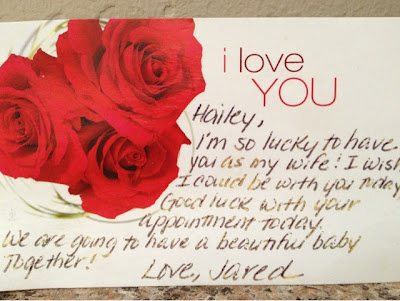 i love
YOU
Hailey,
I'm so lucky to have
you as my wife! I wish
I could be with you today,
Good luck with your
appointment today.
We are going to have a beautiful baby
Together!
Love, Jared